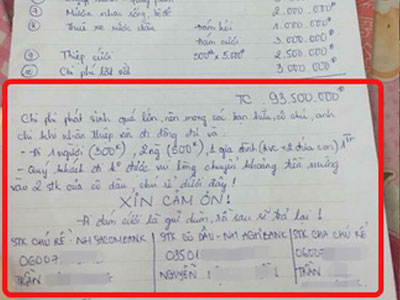 2.000.000đ
⑦ Mướn nhau sống, bí đề
⑧ Thuê xe rước dâu đám hỏi 1.000.000đ
đám cưới 3.000.000đ
⑨ Thiệp cưới 500th x 5.000đ 2.500.000đ
⑩ Chi phí lặt vặt 3 000 000đ
TC 93.500.000đ
Chi phí phát sinh quá lớn, nên mong các bạn hữu, cô chú, anh
chị khi nhận thiệp xin đi đồng đủ và:
- Đi 1 người (300k), 2 ng (500k), 1 gia đình (2vc + 2 đứa con) 1tr
- Quý khách đi k được vui lòng chuyển khoản tiền mừng
vào 2 stk của cô dâu, chú rể dưới đây!
XIN CẢM ƠN!
Đi đám cưới là gửi đum, rồi sau sẽ trả lại!
STK CHÚ RỂ - NH SACOMBANK STK CÔ DÂU - NH AGRIBANK STK CHA CHÚ RỂ
06007 03501 0600
TRẦN NGUYỄN TRẦN